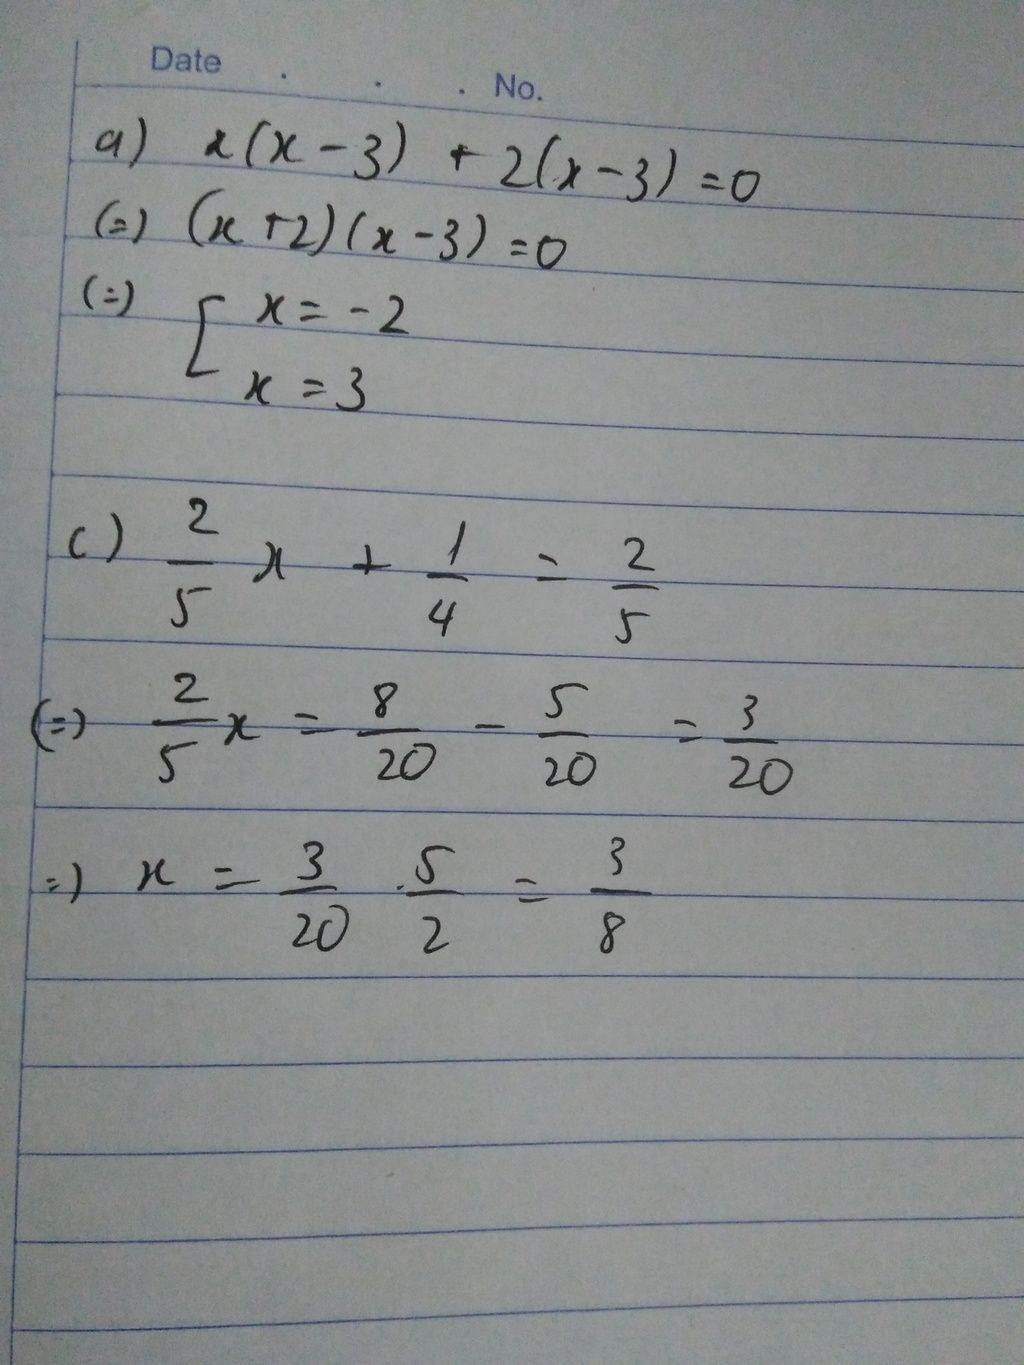 Date . . . No.
a) x(x-3) + 2(x-3) = 0
(=) (x+2)(x-3) = 0
(=) [ x = -2
x = 3
c) 2/5 x + 1/4 = 2/5
(=) 2/5 x = 8/20 - 5/20 = 3/20
=) x = 3/20 . 5/2 = 3/8